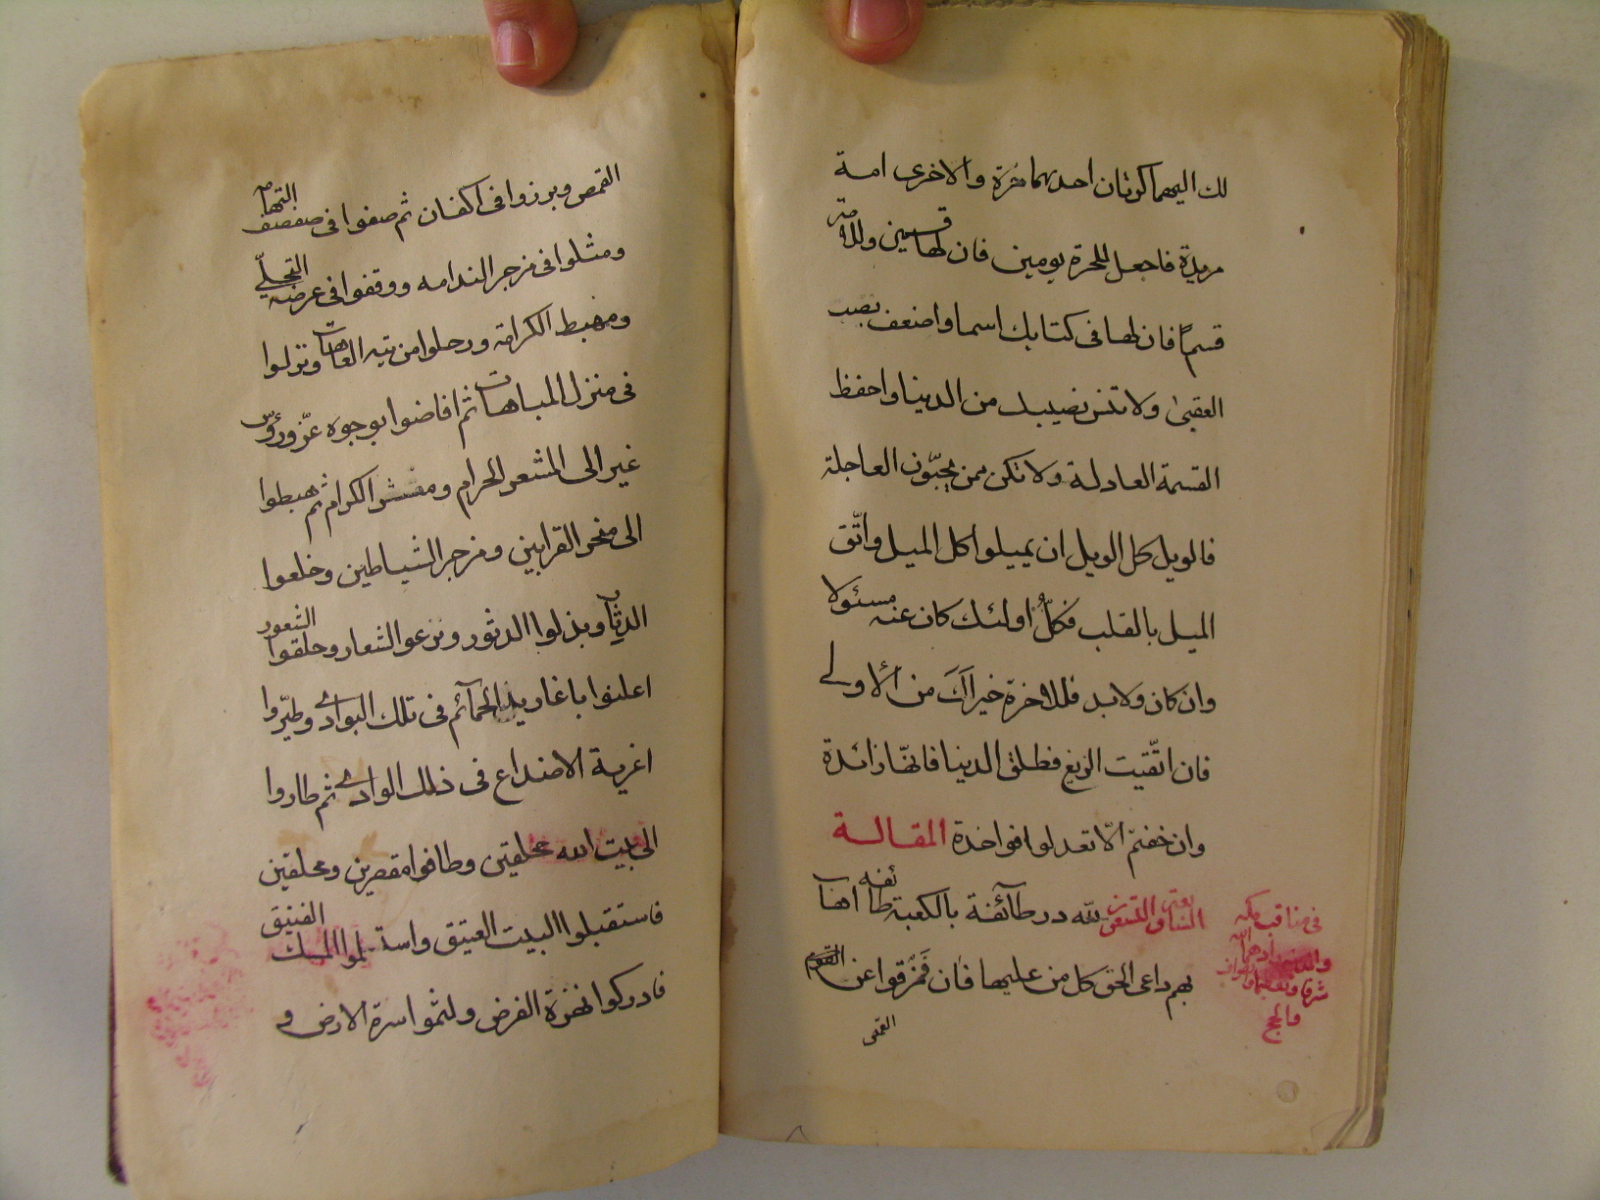 لك اليهما كرتان احديهما حرة والاخرى امة
مريدة فاجعل للحرة يومين فان لها قسمين وللامة
قسمًا فان لها فى كتابك اسما واضعف نصيب
العقبى ولا تنس نصيبك من الدنيا واحفظ
القسمة العادلة ولا تكن ممن يحبّون العاجلة
فالويل كل الويل ان يميلوا كل الميل واتّق
الميل بالقلب فكلّ اولئك كان عنه مسئولا
وان كان ولا بد فللاخرة خير لك من الاولى
فان اتّقيت الزيغ فطلق الدنيا فانهّا زائدة
وان خفتم الّا تعدلوا فواحدة المقالـــة
لله در طآئفة بالكعبة طائفه اهاب
بهم داعى الحق كل من عليها فان فمزّقوا عن
فى مناقب مكه
شرفا وتعظيما
والحج
القمص وبرزوا فى اكفان ثم صفوا فى صفصف
ومثلوا فى مزجر الندامه ووقفوا فى عرضه التجلّي
ومهبط الكرامة ورحلوا من تيه العاهات ونزلوا
فى منزل المباهات ثم افاضوا بوجوه غرّ ورؤس
غبر الى المشعر الحرام ومفشر الكرام ثم هبطوا
الى منحر القرابين ومزجر الشياطين وخلعوا
الدثار وبذلوا الدثور ونزعو الشعار وحلقوا الشعور
اعلنوا باغاريد الحمآئم فى تلك البوادى وطيّروا
اغربة الاصداع فى ذلك الوادى ثم طاروا
الى بيت الله محلقين وطافوا مقصرين ومحلقين
فاستقبلوا البيت العتيق واستلموا المسك الفتيق
فادركوا نهزة الفرض ولثموا اسرة الارض و